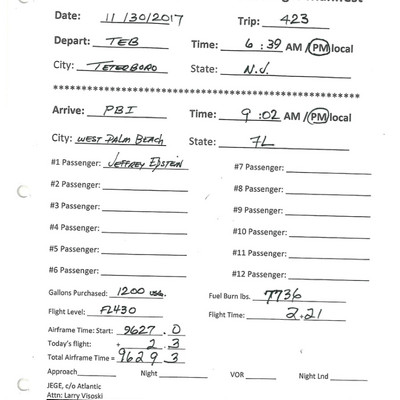 Date: 11/30/2017 Trip: 423
Depart: TEB Time: 6:39 AM / PM local
City: TETERBORO State: N.J.
****************************************************
Arrive: PBI Time: 9:02 AM / PM local
City: WEST PALM BEACH State: FL
#1 Passenger: JEFFREY EPSTEIN #7 Passenger:
#2 Passenger: #8 Passenger:
#3 Passenger: #9 Passenger:
#4 Passenger: #10 Passenger:
#5 Passenger: #11 Passenger:
#6 Passenger: #12 Passenger:
Gallons Purchased: 1200 Fuel Burn lbs. 7736
Flight Level: FL430 Flight Time: 2.21
Airframe Time: Start: 9627.0
Today's flight: + 2.3
Total Airframe Time = 9629.3
Approach Night VOR Night Lnd
JEGE, c/o Atlantic
Attn: Larry Visoski